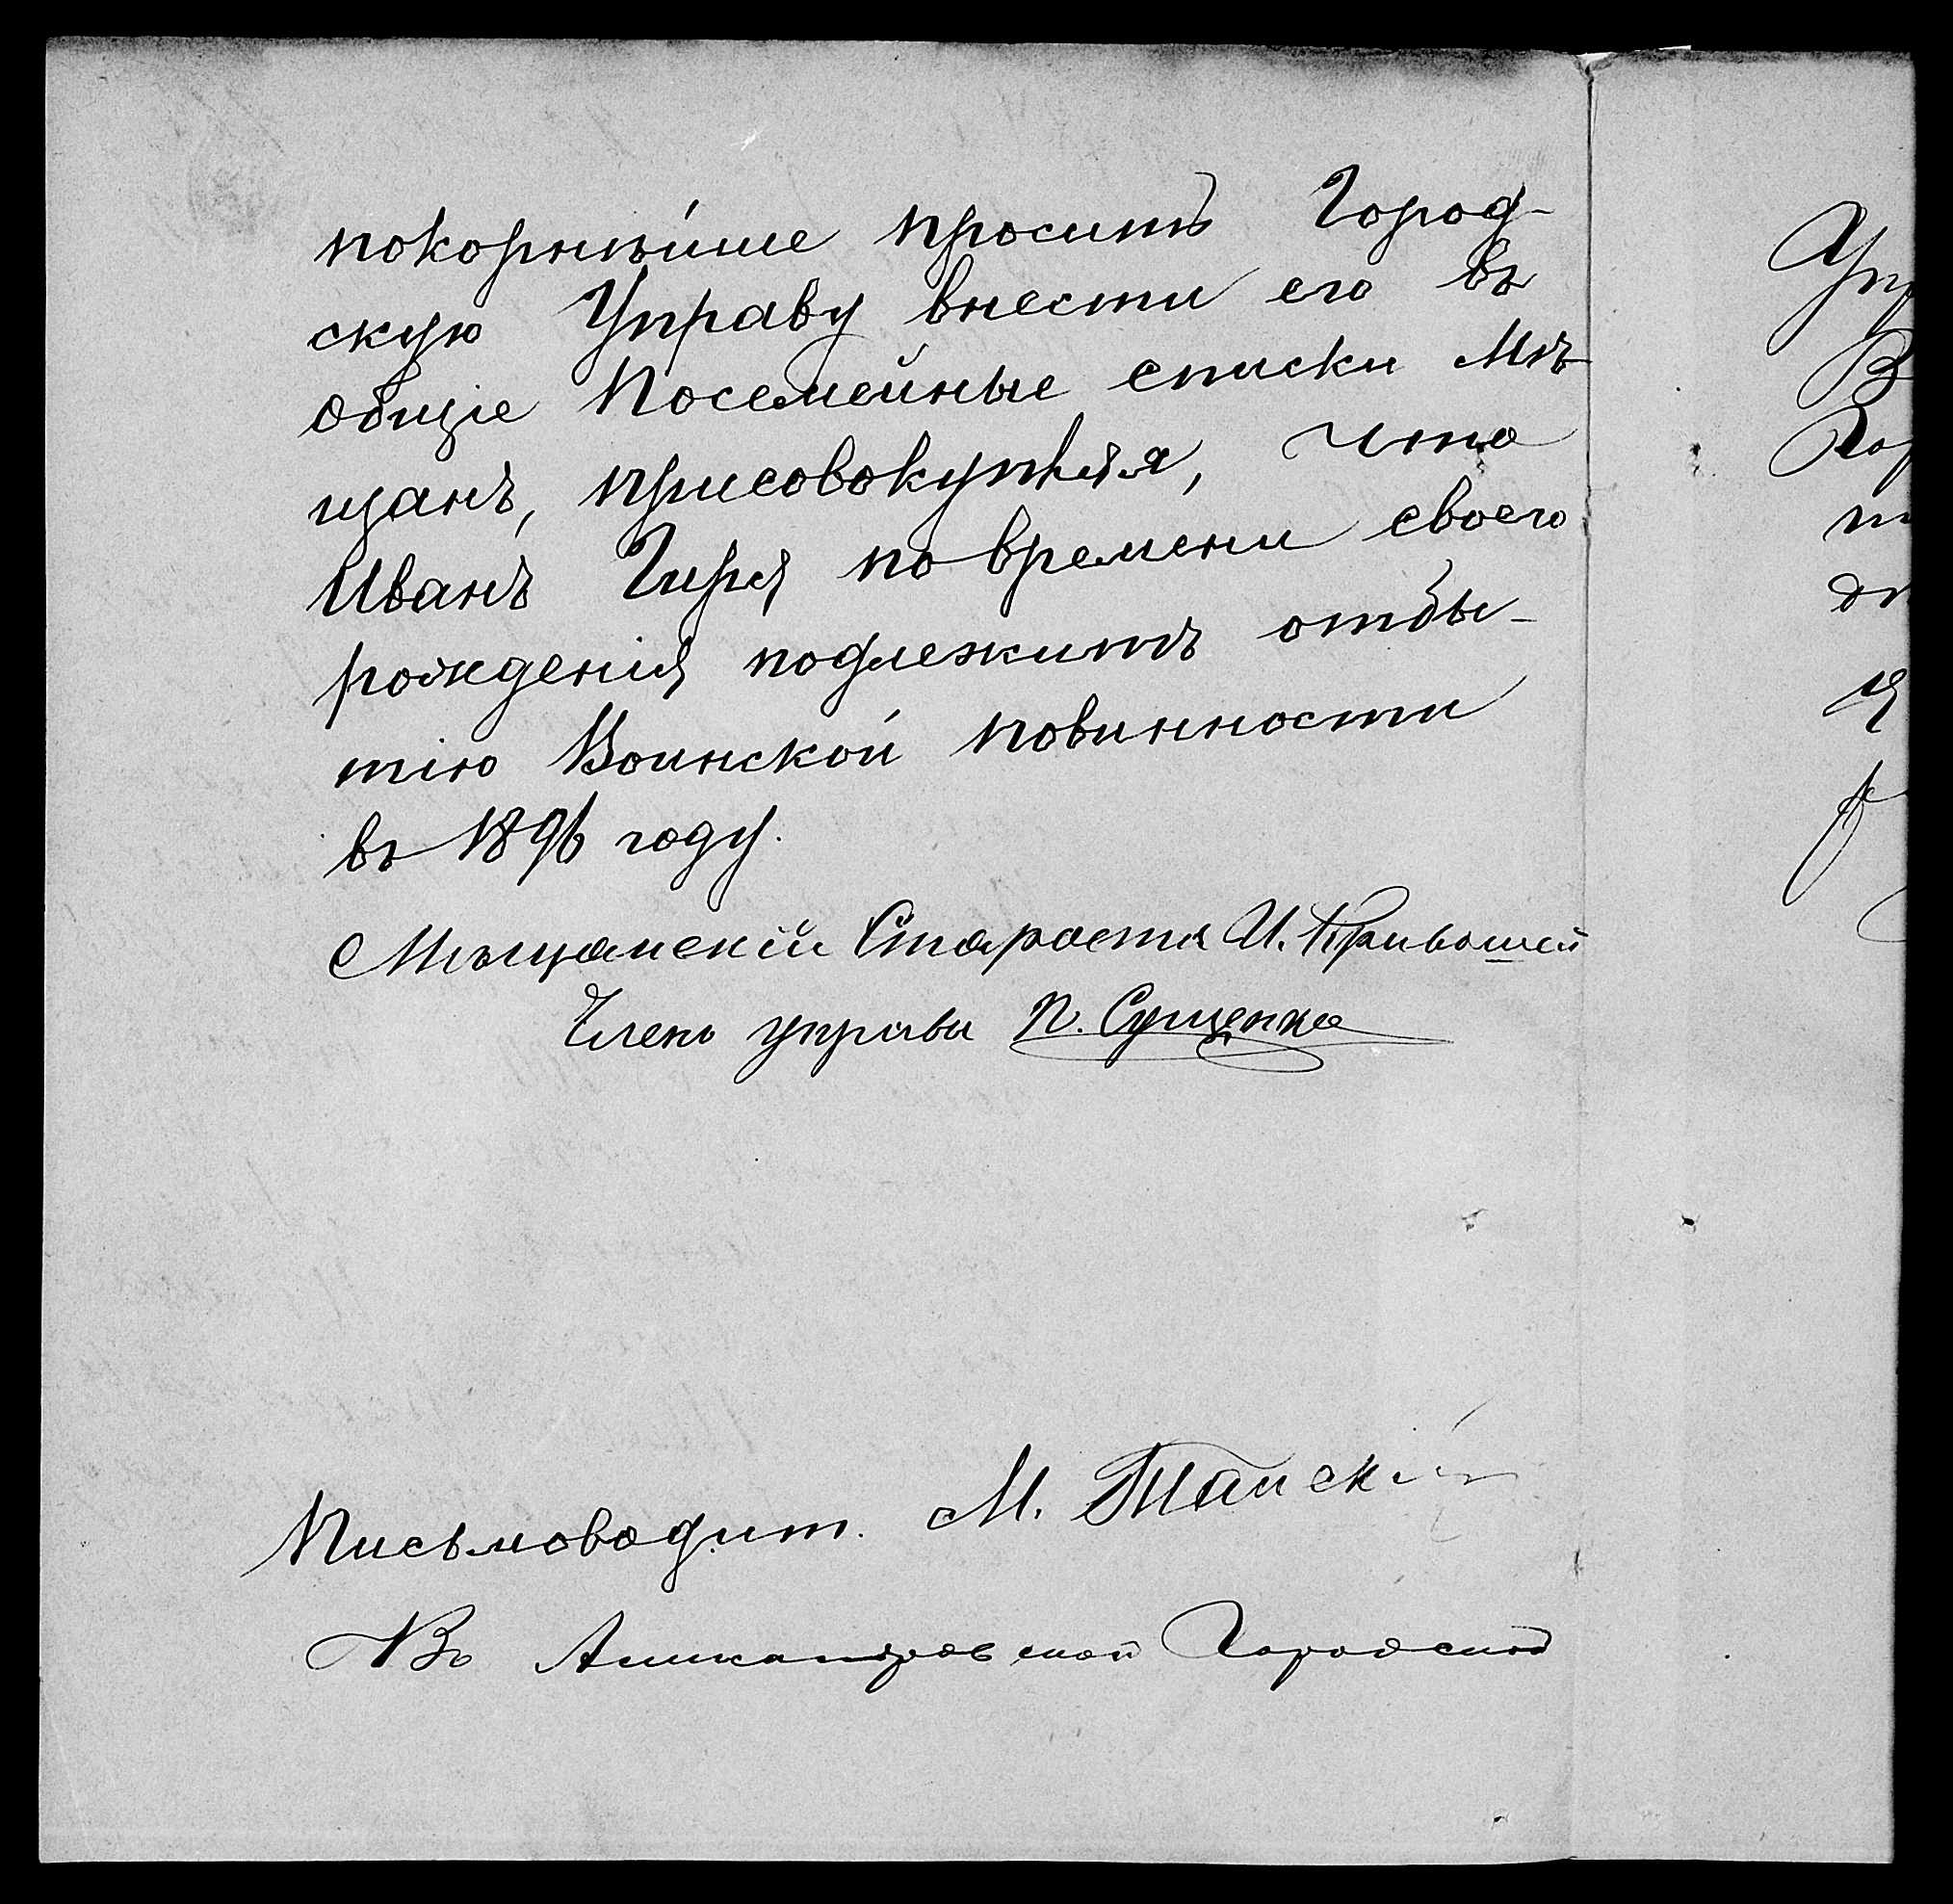 покорнѣйше проситъ Город-
скую Управу внести его въ
общіе Посемейные списки Мѣ
щанъ, присовокупляя, что
Иванъ Гиря по времени своего
рожденія подлежитъ отбы-
тію Воинской повинности
въ 1896 году.
Мѣщанскій Староста И. Кривошей
Членъ управы П. Сущенко
Письмоводит. М. Танскій
Въ Александровской Городской